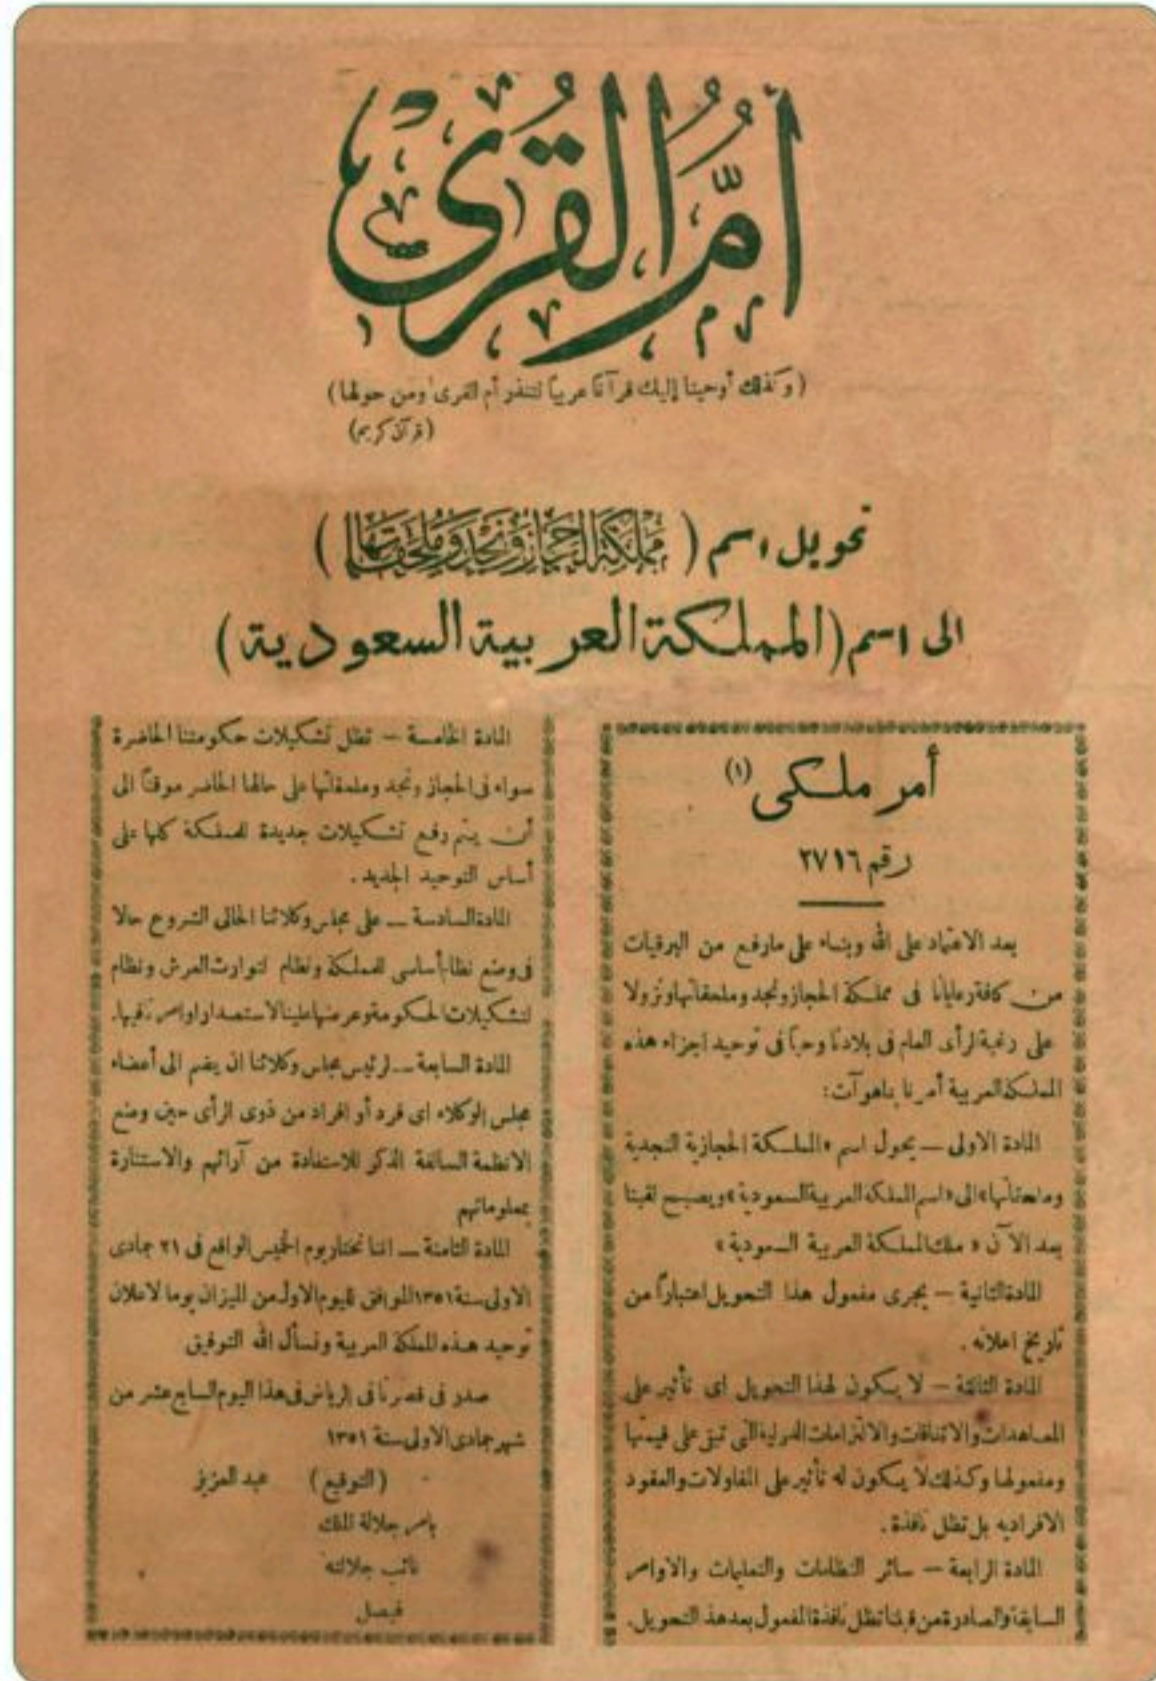 أُمُّ القُرَىٰ
(وكذلك أوحينا إليك قرآنًا عربيًا لتنذر أم القرى ومن حولها)
(قرآن كريم)
تحويل اسم (مملكة الحجاز ونجد وملحقاتها)
الى اسم (المملكة العربية السعودية)
أمر ملكى (١)
رقم ٢٧١٦
بعد الاعتماد على الله وبناء على مارفع من البرقيات
من كافة رعايانا فى مملكة الحجاز ونجد وملحقاتها ونزولا
على رغبة الرأى العام فى بلادنا وحبا فى توحيد اجزاء هذه
المملكة العربية أمرنا بماهو آت:
المادة الاولى — يحول اسم «المملكة الحجازية النجدية
وملحقاتها» الى «اسم المملكة العربية السعودية» ويصبح لقبنا
بعد الآن « ملك المملكة العربية السعودية »
المادة الثانية — يجرى مفعول هذا التحويل اعتبارًا من
تاريخ اعلانه .
المادة الثالثة — لا يكون لهذا التحويل اى تأثير على
المعاهدات والاتفاقات والالتزامات الدولية التى تبقى على قيمتها
ومفعولها وكذلك لا يكون له تأثير على المقاولات والعقود
الافراديه بل تظل نافذة .
المادة الرابعة — سائر النظامات والتعليمات والاوامر
السابقة والصادرة من قبلنا تظل نافذة المفعول بعد هذ التحويل.
المادة الخامسة — تظل تشكيلات حكومتنا الحاضرة
سواء فى الحجاز ونجد وملحقاتها على حالها الحاضر موقتًا الى
أن يتم رفع تشكيلات جديدة للمملكة كلها على
أساس التوحيد الجديد .
المادة السادسة — على مجلس وكلائنا الحالى الشروع حالا
فى وضع نظام أساسى للمملكة ونظام لتوارث العرش ونظام
لتشكيلات الحكومة وعرضها علينا لاستصدار اوامرنا فيها.
المادة السابعة — لرئيس مجلس وكلائنا ان يضم الى أعضاء
مجلس الوكلاء اى فرد أو افراد من ذوى الرأى حين وضع
الانظمة السالفة الذكر للاستفادة من آرائهم والاستنارة
بمعلوماتهم
المادة الثامنة — اننا نختار يوم الخميس الواقع فى ٢١ جمادى
الاولى سنة ١٣٥١ الموافق لليوم الاول من الميزان يوما لاعلان
توحيد هذه المملكة العربية ونسأل الله التوفيق
صدر فى قصرنا فى الرياض فى هذا اليوم السابع عشر من
شهر جمادى الاولى سنة ١٣٥١
(التوقيع) عبد العزيز
بامر جلالة الملك
نائب جلالته
فيصل